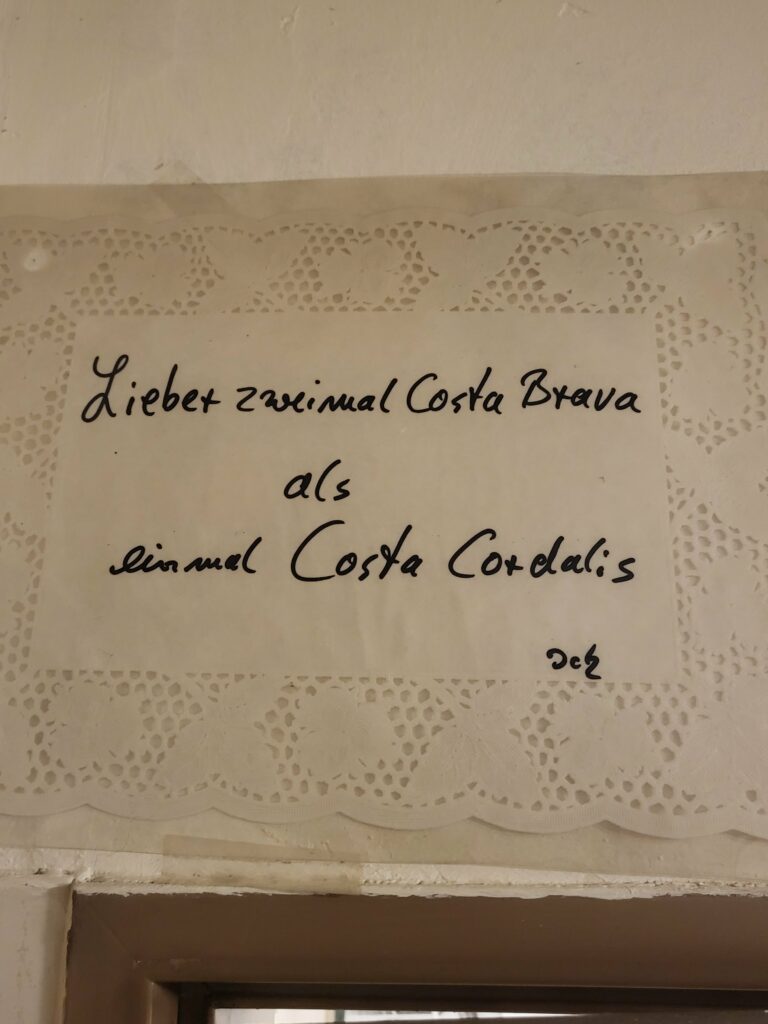 Lieber zweimal Costa Brava
als
einmal Costa Cordalis